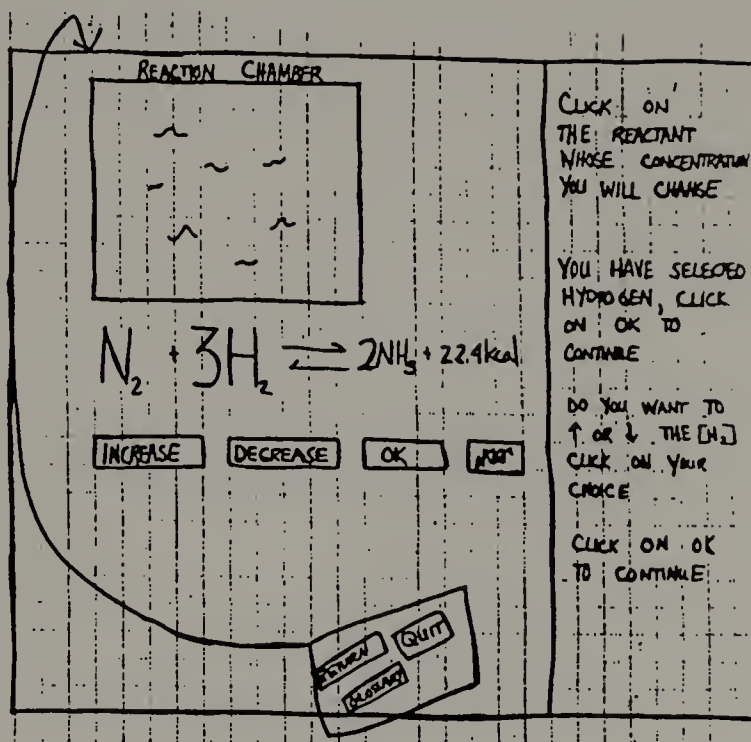 REACTION CHAMBER
N2 + 3H2 ⇌ 2NH3 + 22.4kcal
INCREASE DECREASE OK
RETURN QUIT
GLOSSARY
CLICK ON
THE REACTANT
WHOSE CONCENTRATION
YOU WILL CHANGE
YOU HAVE SELECTED
HYDROGEN, CLICK
ON OK TO
CONTINUE
DO YOU WANT TO
↑ OR ↓ THE [H2]
CLICK ON YOUR
CHOICE
CLICK ON OK
TO CONTINUE